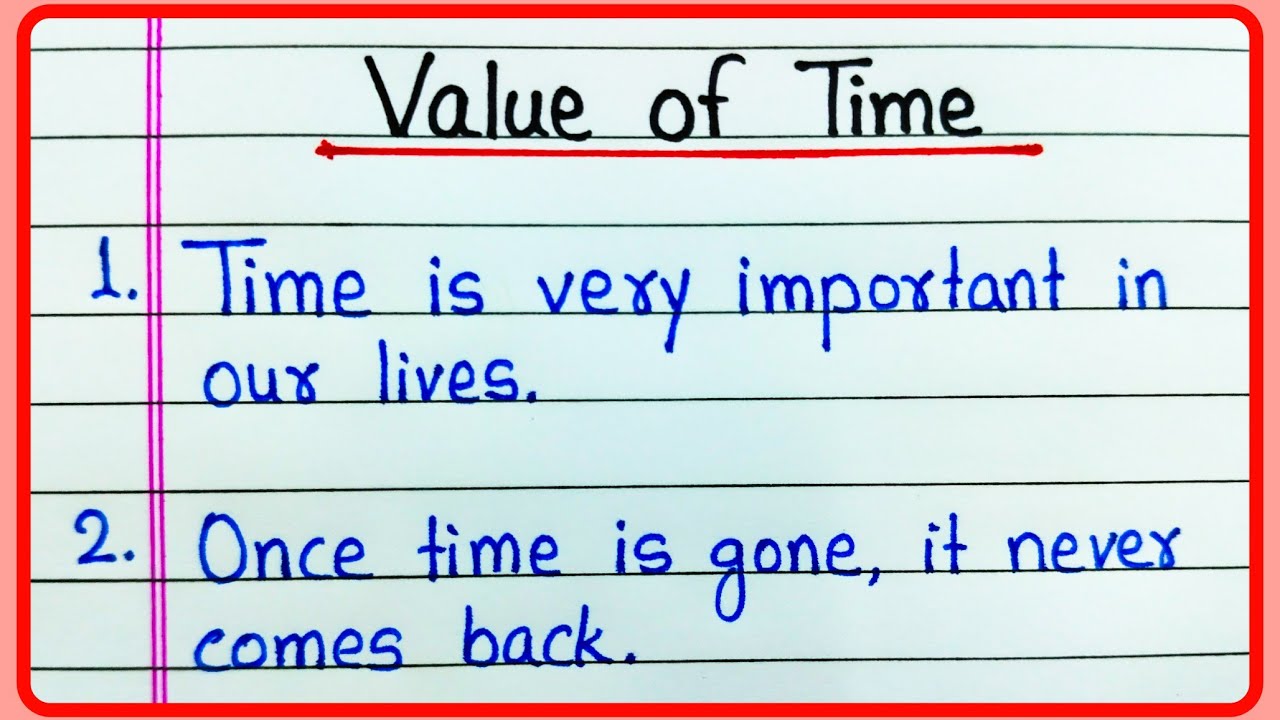 Value of Time
1. Time is very important in
our lives.
2. Once time is gone, it never
comes back.